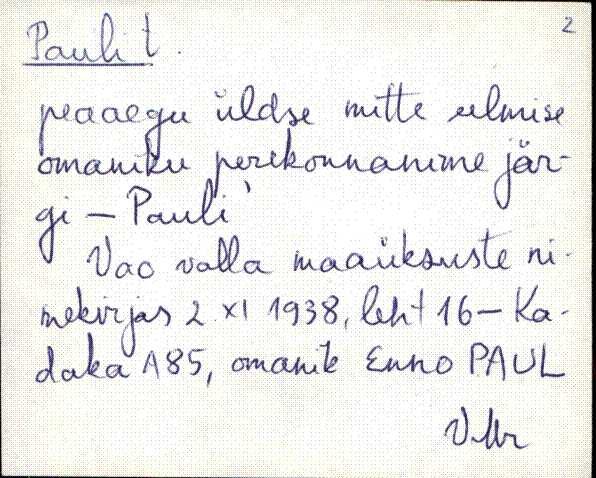 Pauli t.
2
peaaegu üldse mitte eelmise
omaniku perekonnanime jär-
gi – Pauli'
Vao valla maaüksuste ni-
mekirjas 2 XI 1938, leht 16 – Ka-
daka A85, omanik Enno PAUL